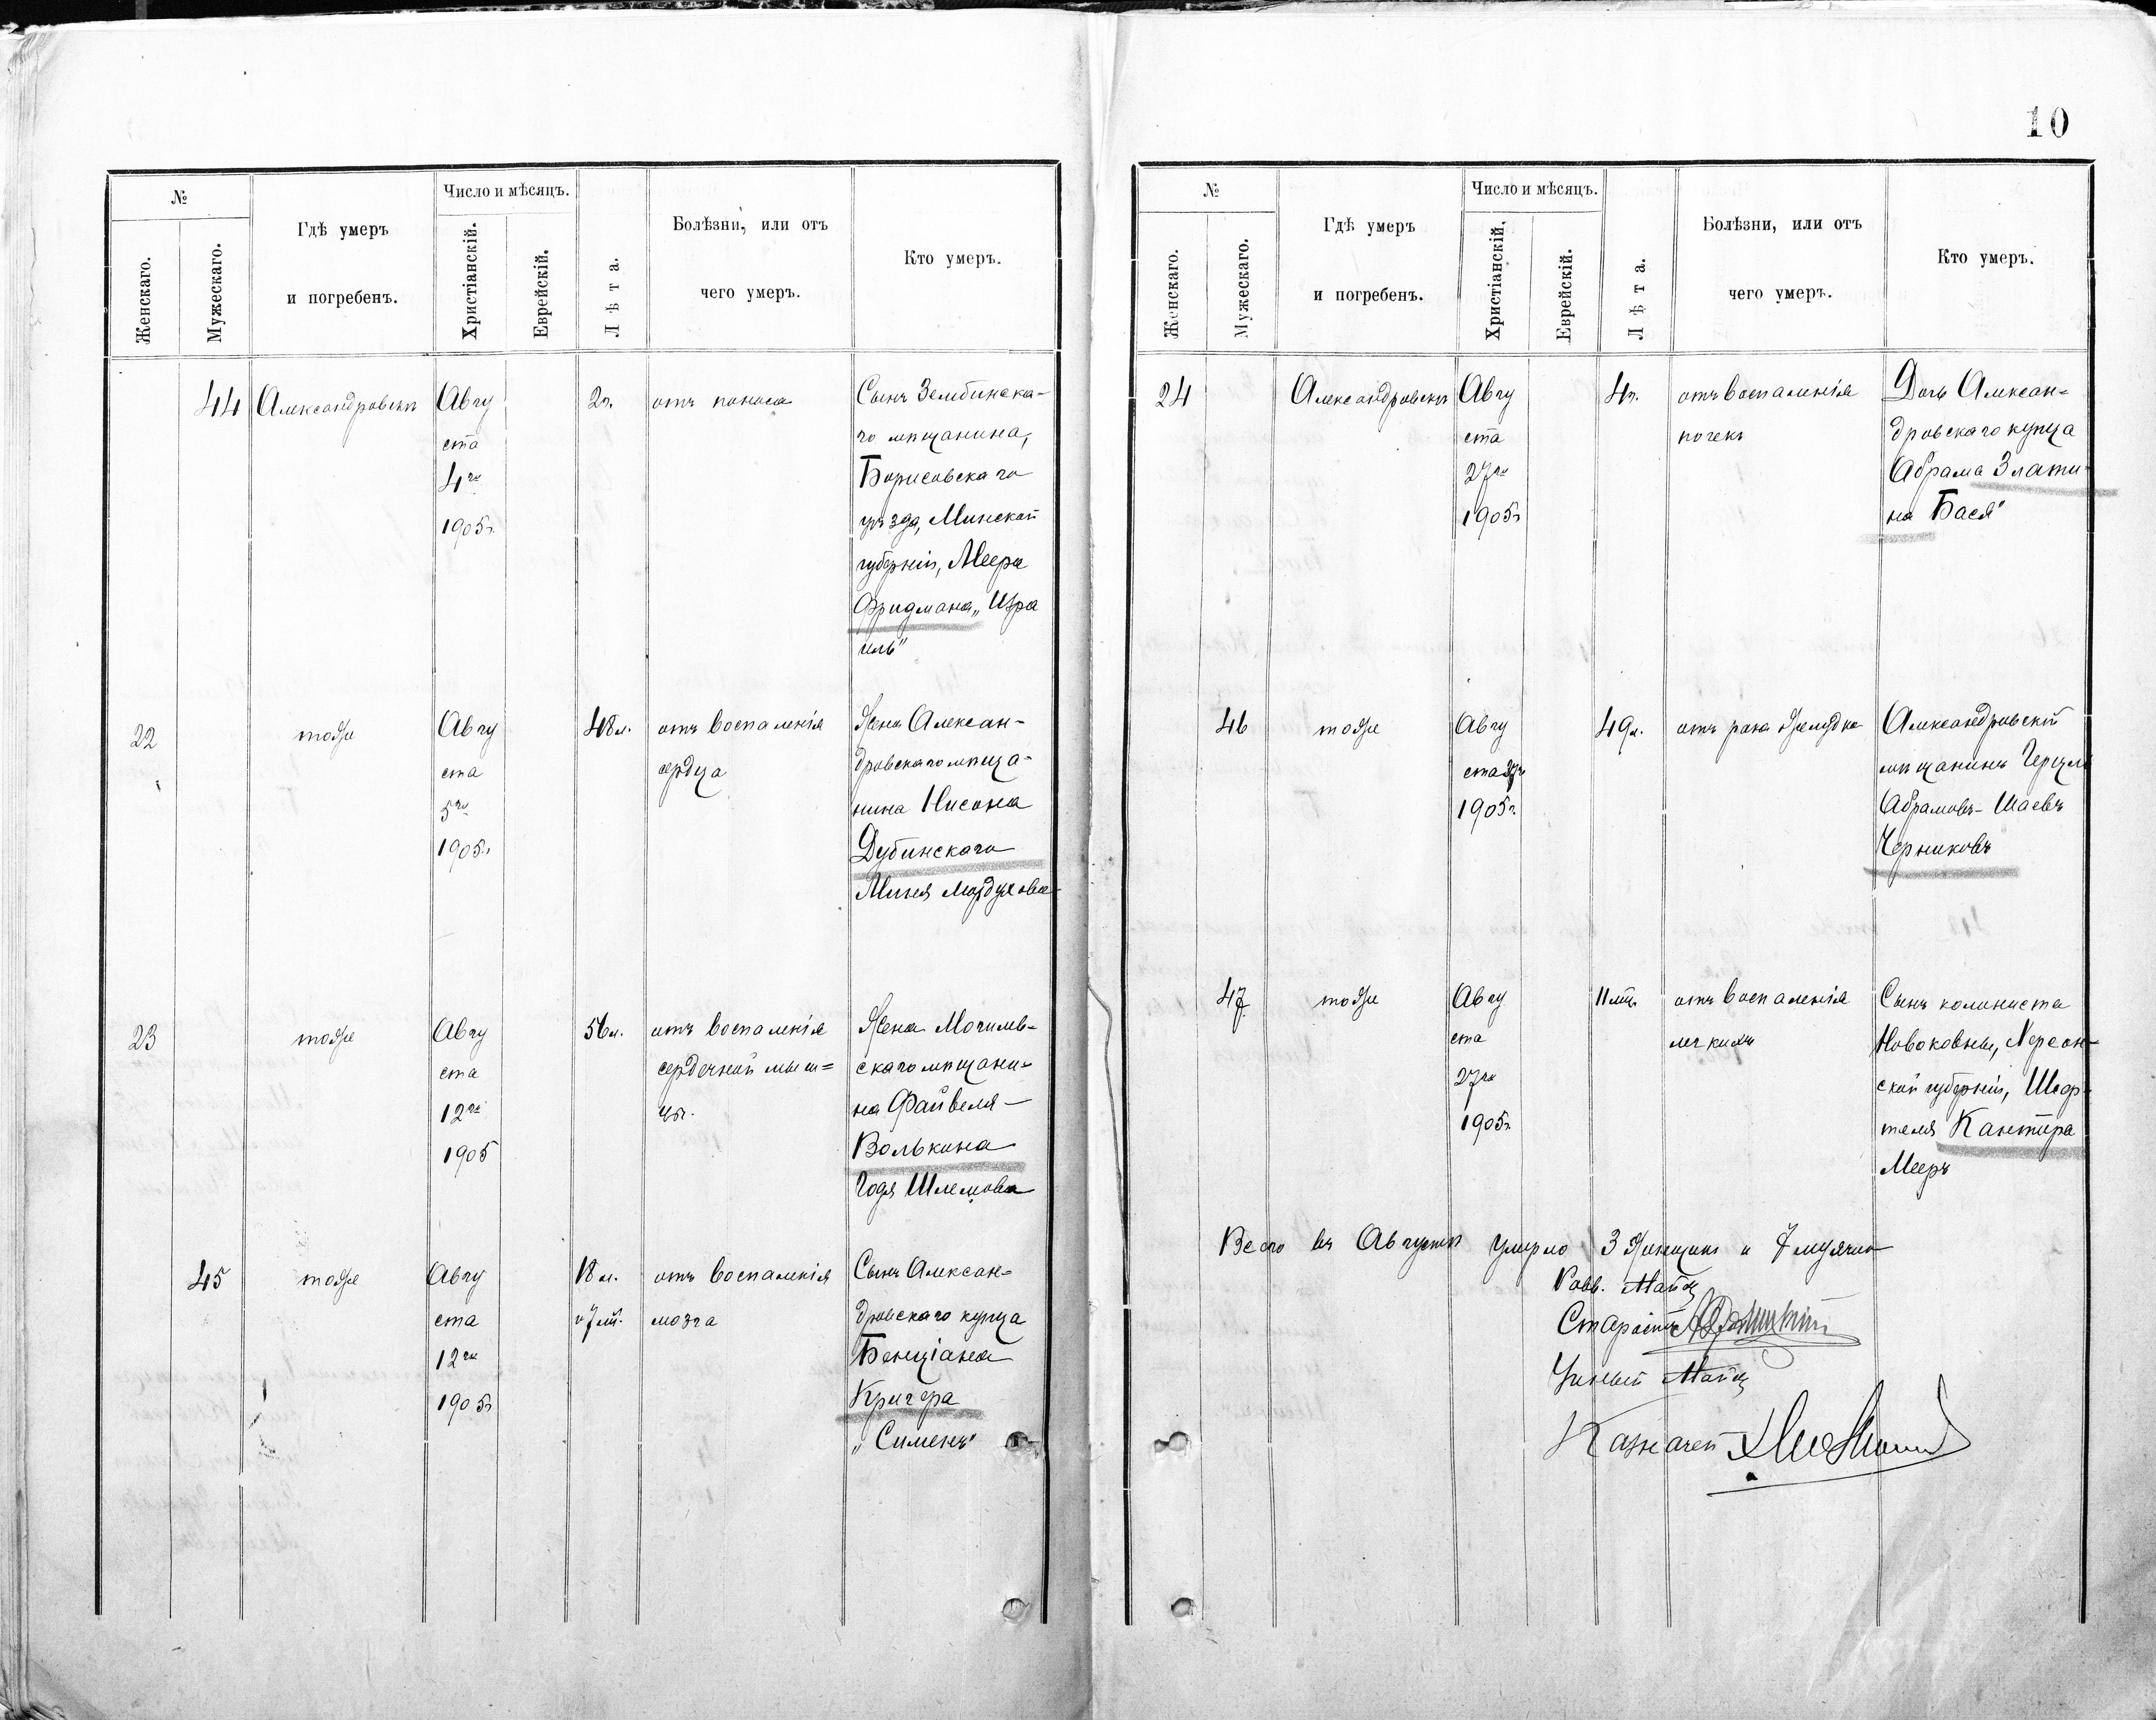 10
№
Женскаго.
Мужескаго.
Гдѣ умеръ
и погребенъ.
Число и мѣсяцъ.
Христіанскій.
Еврейскій.
Лѣта.
Болѣзни, или отъ
чего умеръ.
Кто умеръ.
44
Александровскъ
Авгу
ста
4го
1905г.
2г.
отъ поноса
Сынъ Зембинска-
го мѣщанина,
Борисовскаго
уѣзда, Минской
губерніи, Меера
Фридмана „Изра
иль“
22
тоже
Авгу
ста
5го
1905г.
48л.
отъ воспаленія
сердца
Жена Алексан-
дровскаго мѣща-
нина Нисона
Дубинскаго
Миня Мордухова
23
тоже
Авгу
ста
12го
1905
56л.
отъ воспаленія
сердечной мыш=
цы.
Жена Могилев-
скаго мѣщани-
на Файвеля
Волькина
Годя Шлемова
45
тоже
Авгу
ста
12го
1905г
18 л.
и 7 м.
отъ воспаленія
мозга
Сынъ Алексан-
дровскаго купца
Бенціана
Кригера
„Сименъ“
№
Женскаго.
Мужескаго.
Гдѣ умеръ
и погребенъ.
Число и мѣсяцъ.
Христіанскій.
Еврейскій.
Лѣта.
Болѣзни, или отъ
чего умеръ.
Кто умеръ.
24
Александровскъ
Авгу
ста
27го
1905г
4г.
отъ воспаленія
почекъ
Дочь Алексан=
дровскаго купца
Абрама Злати-
на Бася“
46
тоже
Авгу
ста
1905г.
49л.
отъ рака желудка
Александровскій
мѣщанинъ Герцль
Абрамовъ-Шаевъ
Черниковъ
47
тоже
Авгу
ста
27го
1905г.
11 мѣ.
отъ воспаленія
легкихъ
Сынъ колониста
Новоковны, Херсон-
ской губерніи, Шеф-
теля Кантора
Мееръ
Всего въ Августѣ умерло 3 женщины и 7 мужчин
Равв.
Староста
Ученый
Казначей